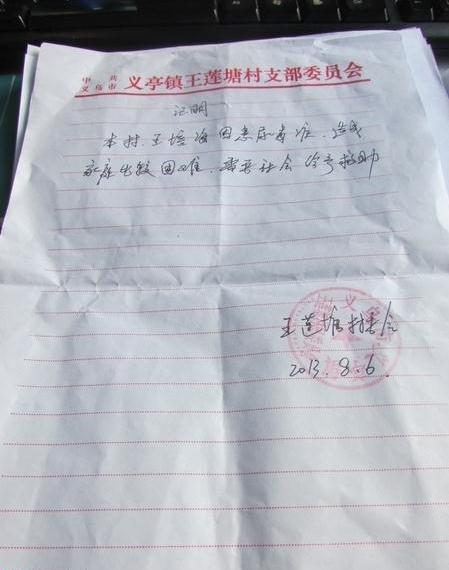 中共义乌市 义亭镇王莲塘村支部委员会
证明
本村王培海因患尿毒症，造成
家庭比较困难，需要社会给予救助
王莲塘村委会
2013.8.6